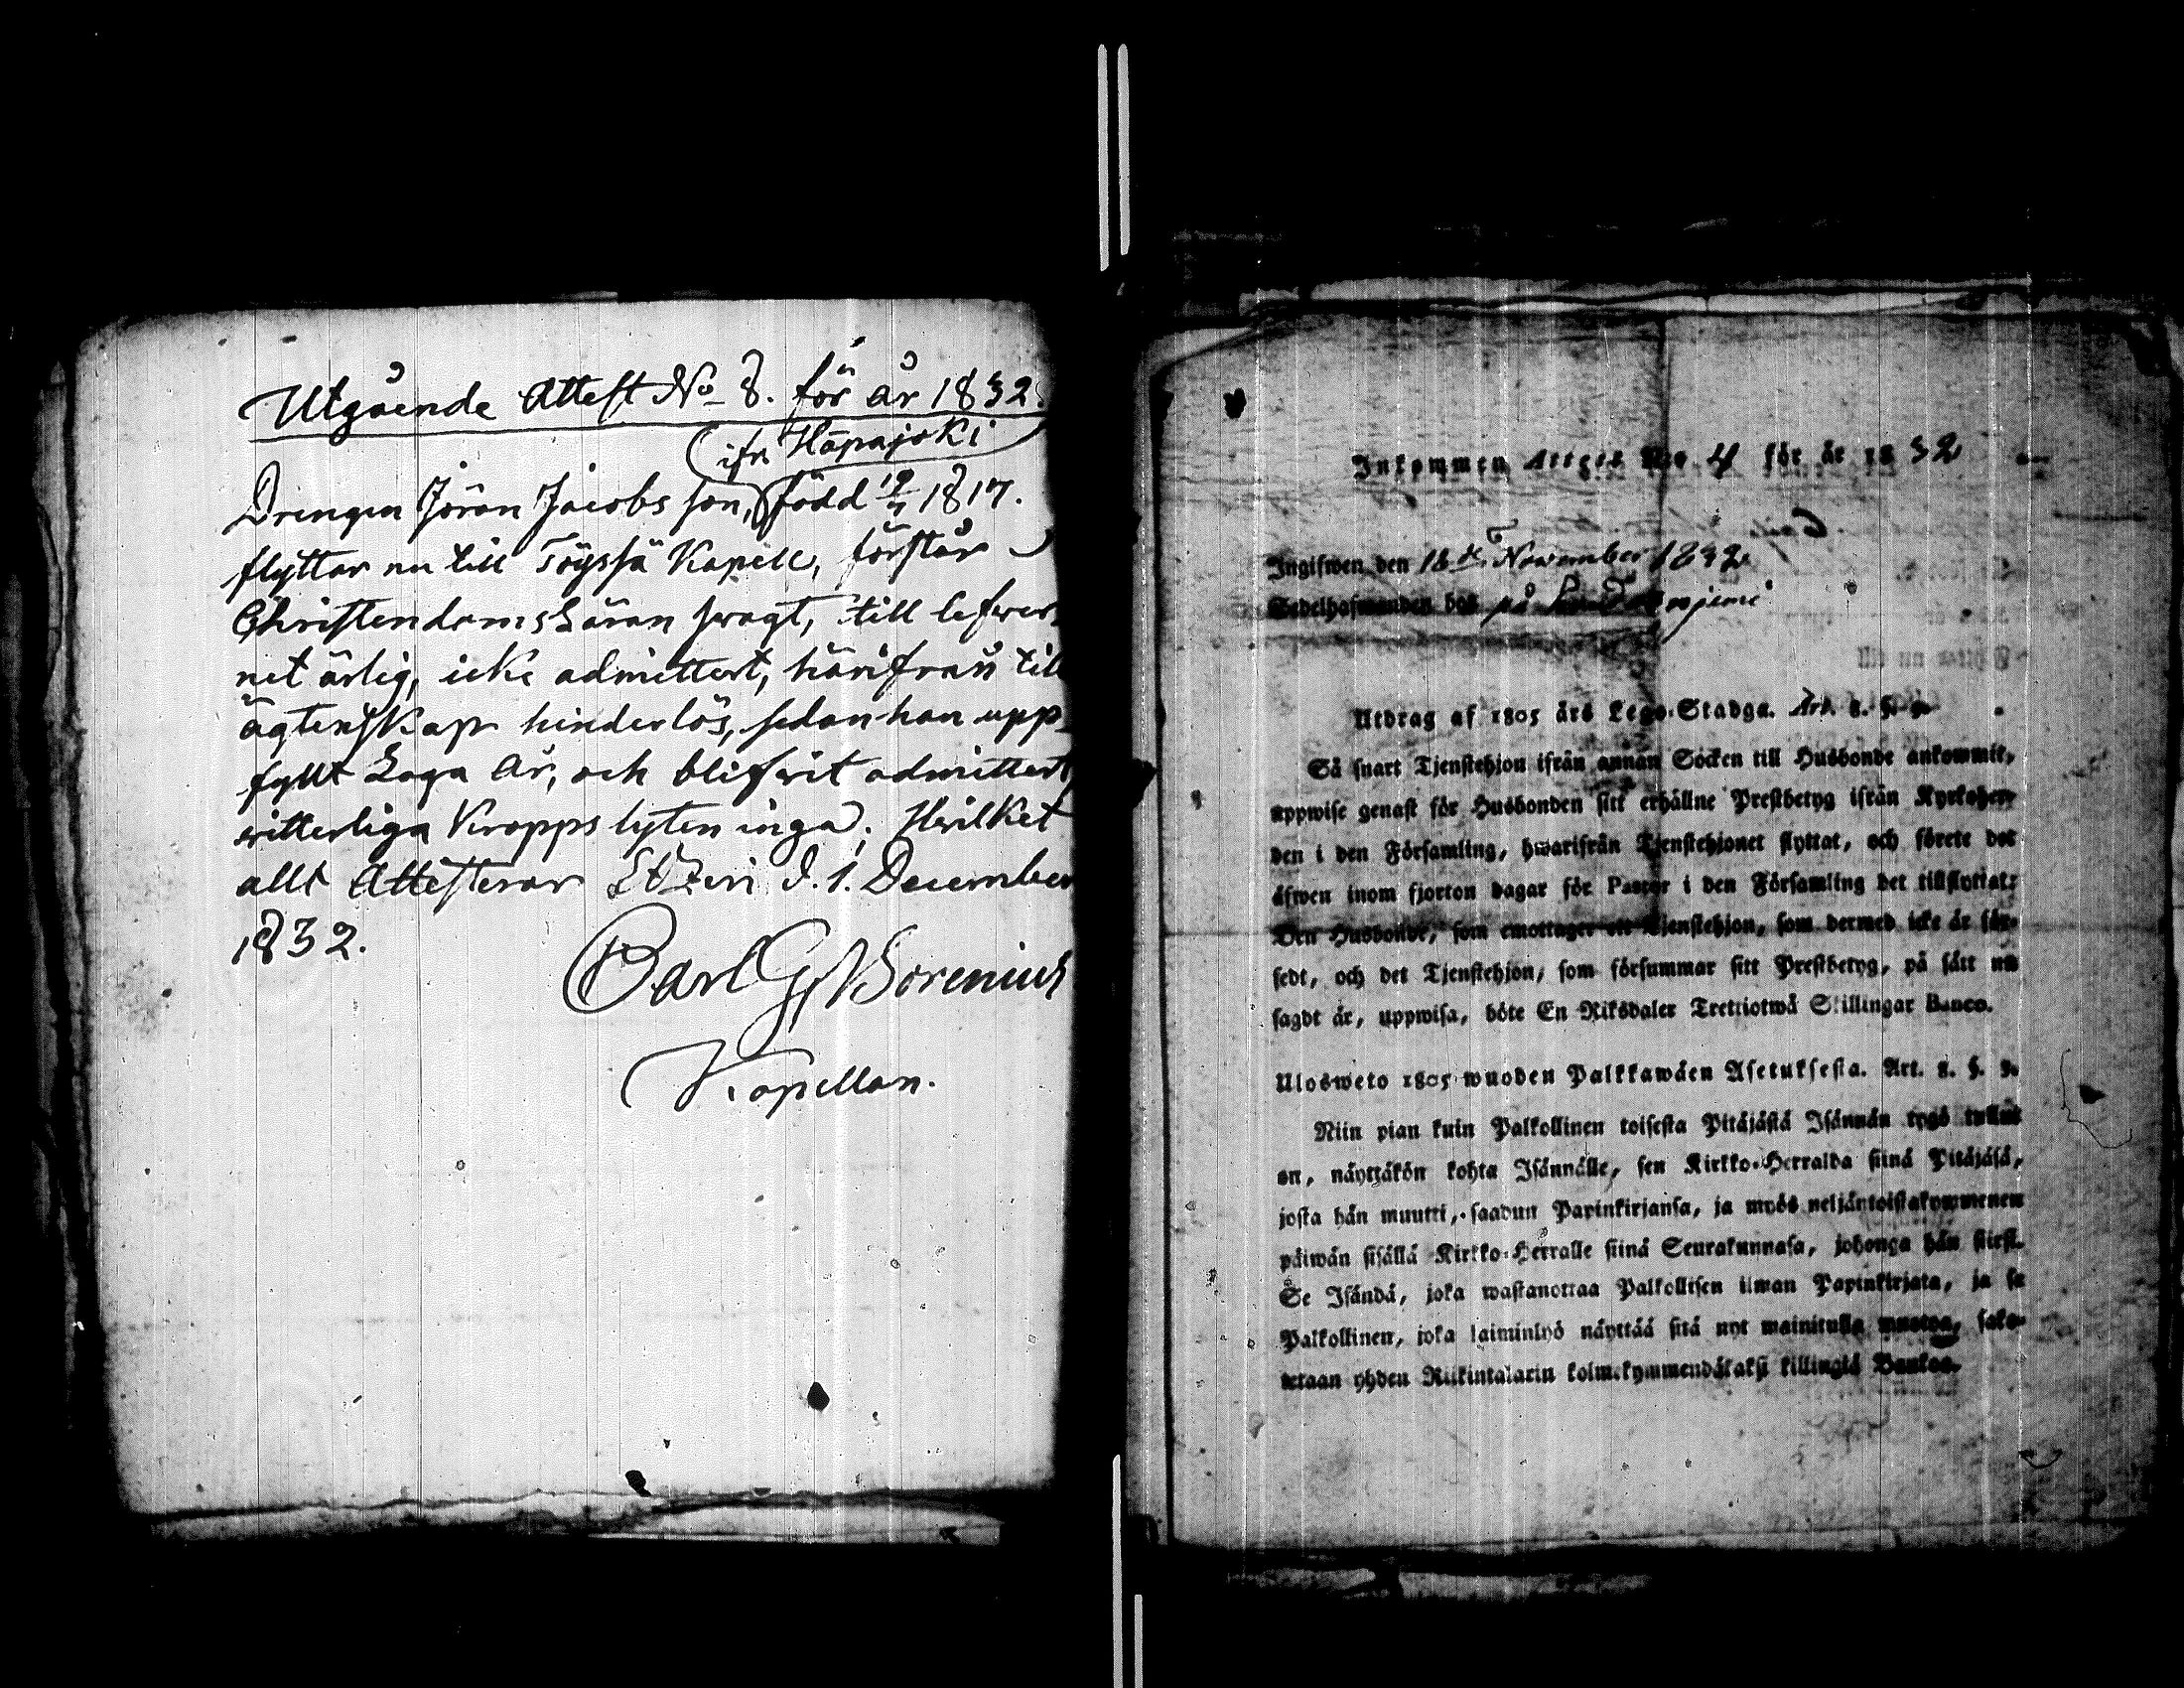 Utgående Attest No 8. för år 1832.
(ifr. Häpajoki)
Drengen Jöran Jacobsson, född 19/4 1817.
flyttar nu till Töyssä Kapell, förstår
Christendoms Läran swagt, till lefwer-
net ärlig, icke admittert, härifrån till
ägtenskap hinderlös, sedan han upp-
fyllt Laga År, och blifwit admittert,
witterliga Kropps lyten inga; Hwilket
allt Attesterar Etzeri d. 1. December
1832.
Carl G. Borenius
Kapellan.
Inkommen Attest No 4 för år 1832
Ingifwen den 18de November 1832
Sedelhafwanden bor på
Utdrag af 1805 års Lego-Stadga. Art. 8. §. 9.
Så snart Tjenstehjon ifrån annan Socken till Husbonde ankommit,
uppwise genast för Husbonden sitt erhållne Prestbetyg ifrån Kyrkoher-
den i den Församling, hwarifrån Tjenstehjonet flyttat, och förete det
äfwen inom fjorton dagar för Pastor i den Församling det tillflyttat:
Den Husbonde, som emottager ett Tjenstehjon, som dermed icke är för-
sedt, och det Tjenstehjon, som försummar sitt Prestbetyg, på sätt nu
sagdt är, uppwisa, böte En Riksdaler Trettiotwå Skillingar Banco.
Ulosweto 1805 wuoden Palkkawäen Asetuksesta. Art. 8. §. 9.
Niin pian kuin Palkollinen toisesta Pitäjästä Isännän tygö tullut
on, näyttäkön kohta Isännälle, sen Kirkko-Herralda siinä Pitäjäsä,
josta hän muutti, saadun Papinkirjansa, ja myös neljäntoistakymmenen
päiwän sisällä Kirkko-Herralle siinä Seurakunnasa, johonga hän siirsi.
Se Isändä, joka wastanottaa Palkollisen ilman Papinkirjata, ja se
Palkollinen, joka laiminlyö näyttää sitä nyt mainitulla muotoa, sako-
tetaan yhden Riikintalarin kolmekymmendäkaksi killingiä Bankos.